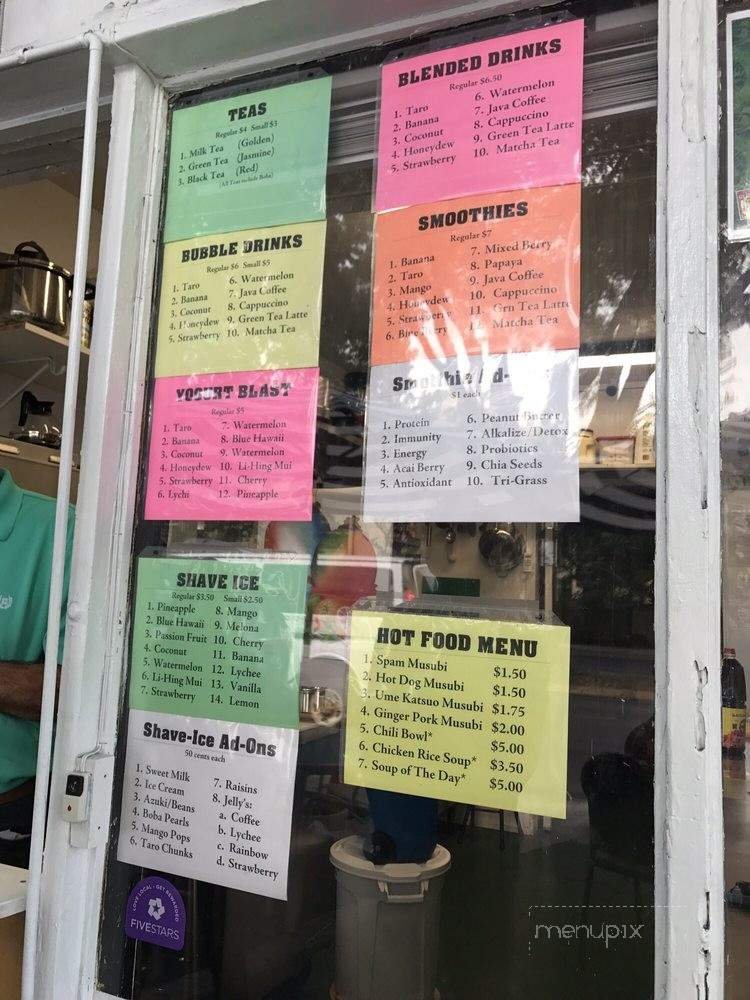 TEAS
Regular $4 Small $3
1. Milk Tea (Golden)
2. Green Tea (Jasmine)
3. Black Tea (Red)
(All Teas include Boba)
BUBBLE DRINKS
Regular $6 Small $5
1. Taro
2. Banana
3. Coconut
4. Honeydew
5. Strawberry
6. Watermelon
7. Java Coffee
8. Cappuccino
9. Green Tea Latte
10. Matcha Tea
YOGURT BLAST
Regular $5
1. Taro
2. Banana
3. Coconut
4. Honeydew
5. Strawberry
6. Lychi
7. Watermelon
8. Blue Hawaii
9. Watermelon
10. Li-Hing Mui
11. Cherry
12. Pineapple
SHAVE ICE
Regular $3.50 Small $2.50
1. Pineapple
2. Blue Hawaii
3. Passion Fruit
4. Coconut
5. Watermelon
6. Li-Hing Mui
7. Strawberry
8. Mango
9. Melona
10. Cherry
11. Banana
12. Lychee
13. Vanilla
14. Lemon
Shave-Ice Ad-Ons
50 cents each
1. Sweet Milk
2. Ice Cream
3. Azuki/Beans
4. Boba Pearls
5. Mango Pops
6. Taro Chunks
7. Raisins
8. Jelly's:
a. Coffee
b. Lychee
c. Rainbow
d. Strawberry
BLENDED DRINKS
Regular $6.50
1. Taro
2. Banana
3. Coconut
4. Honeydew
5. Strawberry
6. Watermelon
7. Java Coffee
8. Cappuccino
9. Green Tea Latte
10. Matcha Tea
SMOOTHIES
Regular $7
1. Banana
2. Taro
3. Mango
4. Honeydew
5. Strawberry
6. Blue Berry
7. Mixed Berry
8. Papaya
9. Java Coffee
10. Cappuccino
11. Grn Tea Latte
12. Matcha Tea
Smoothie
$1 each
1. Protein
2. Immunity
3. Energy
4. Acai Berry
5. Antioxidant
6. Peanut Butter
7. Alkalize/Detox
8. Probiotics
9. Chia Seeds
10. Tri-Grass
HOT FOOD MENU
1. Spam Musubi $1.50
2. Hot Dog Musubi $1.50
3. Ume Katsuo Musubi $1.75
4. Ginger Pork Musubi $2.00
5. Chili Bowl* $5.00
6. Chicken Rice Soup* $3.50
7. Soup of The Day* $5.00
LOVE LOCAL · GET REWARDED
FIVESTARS
menupix